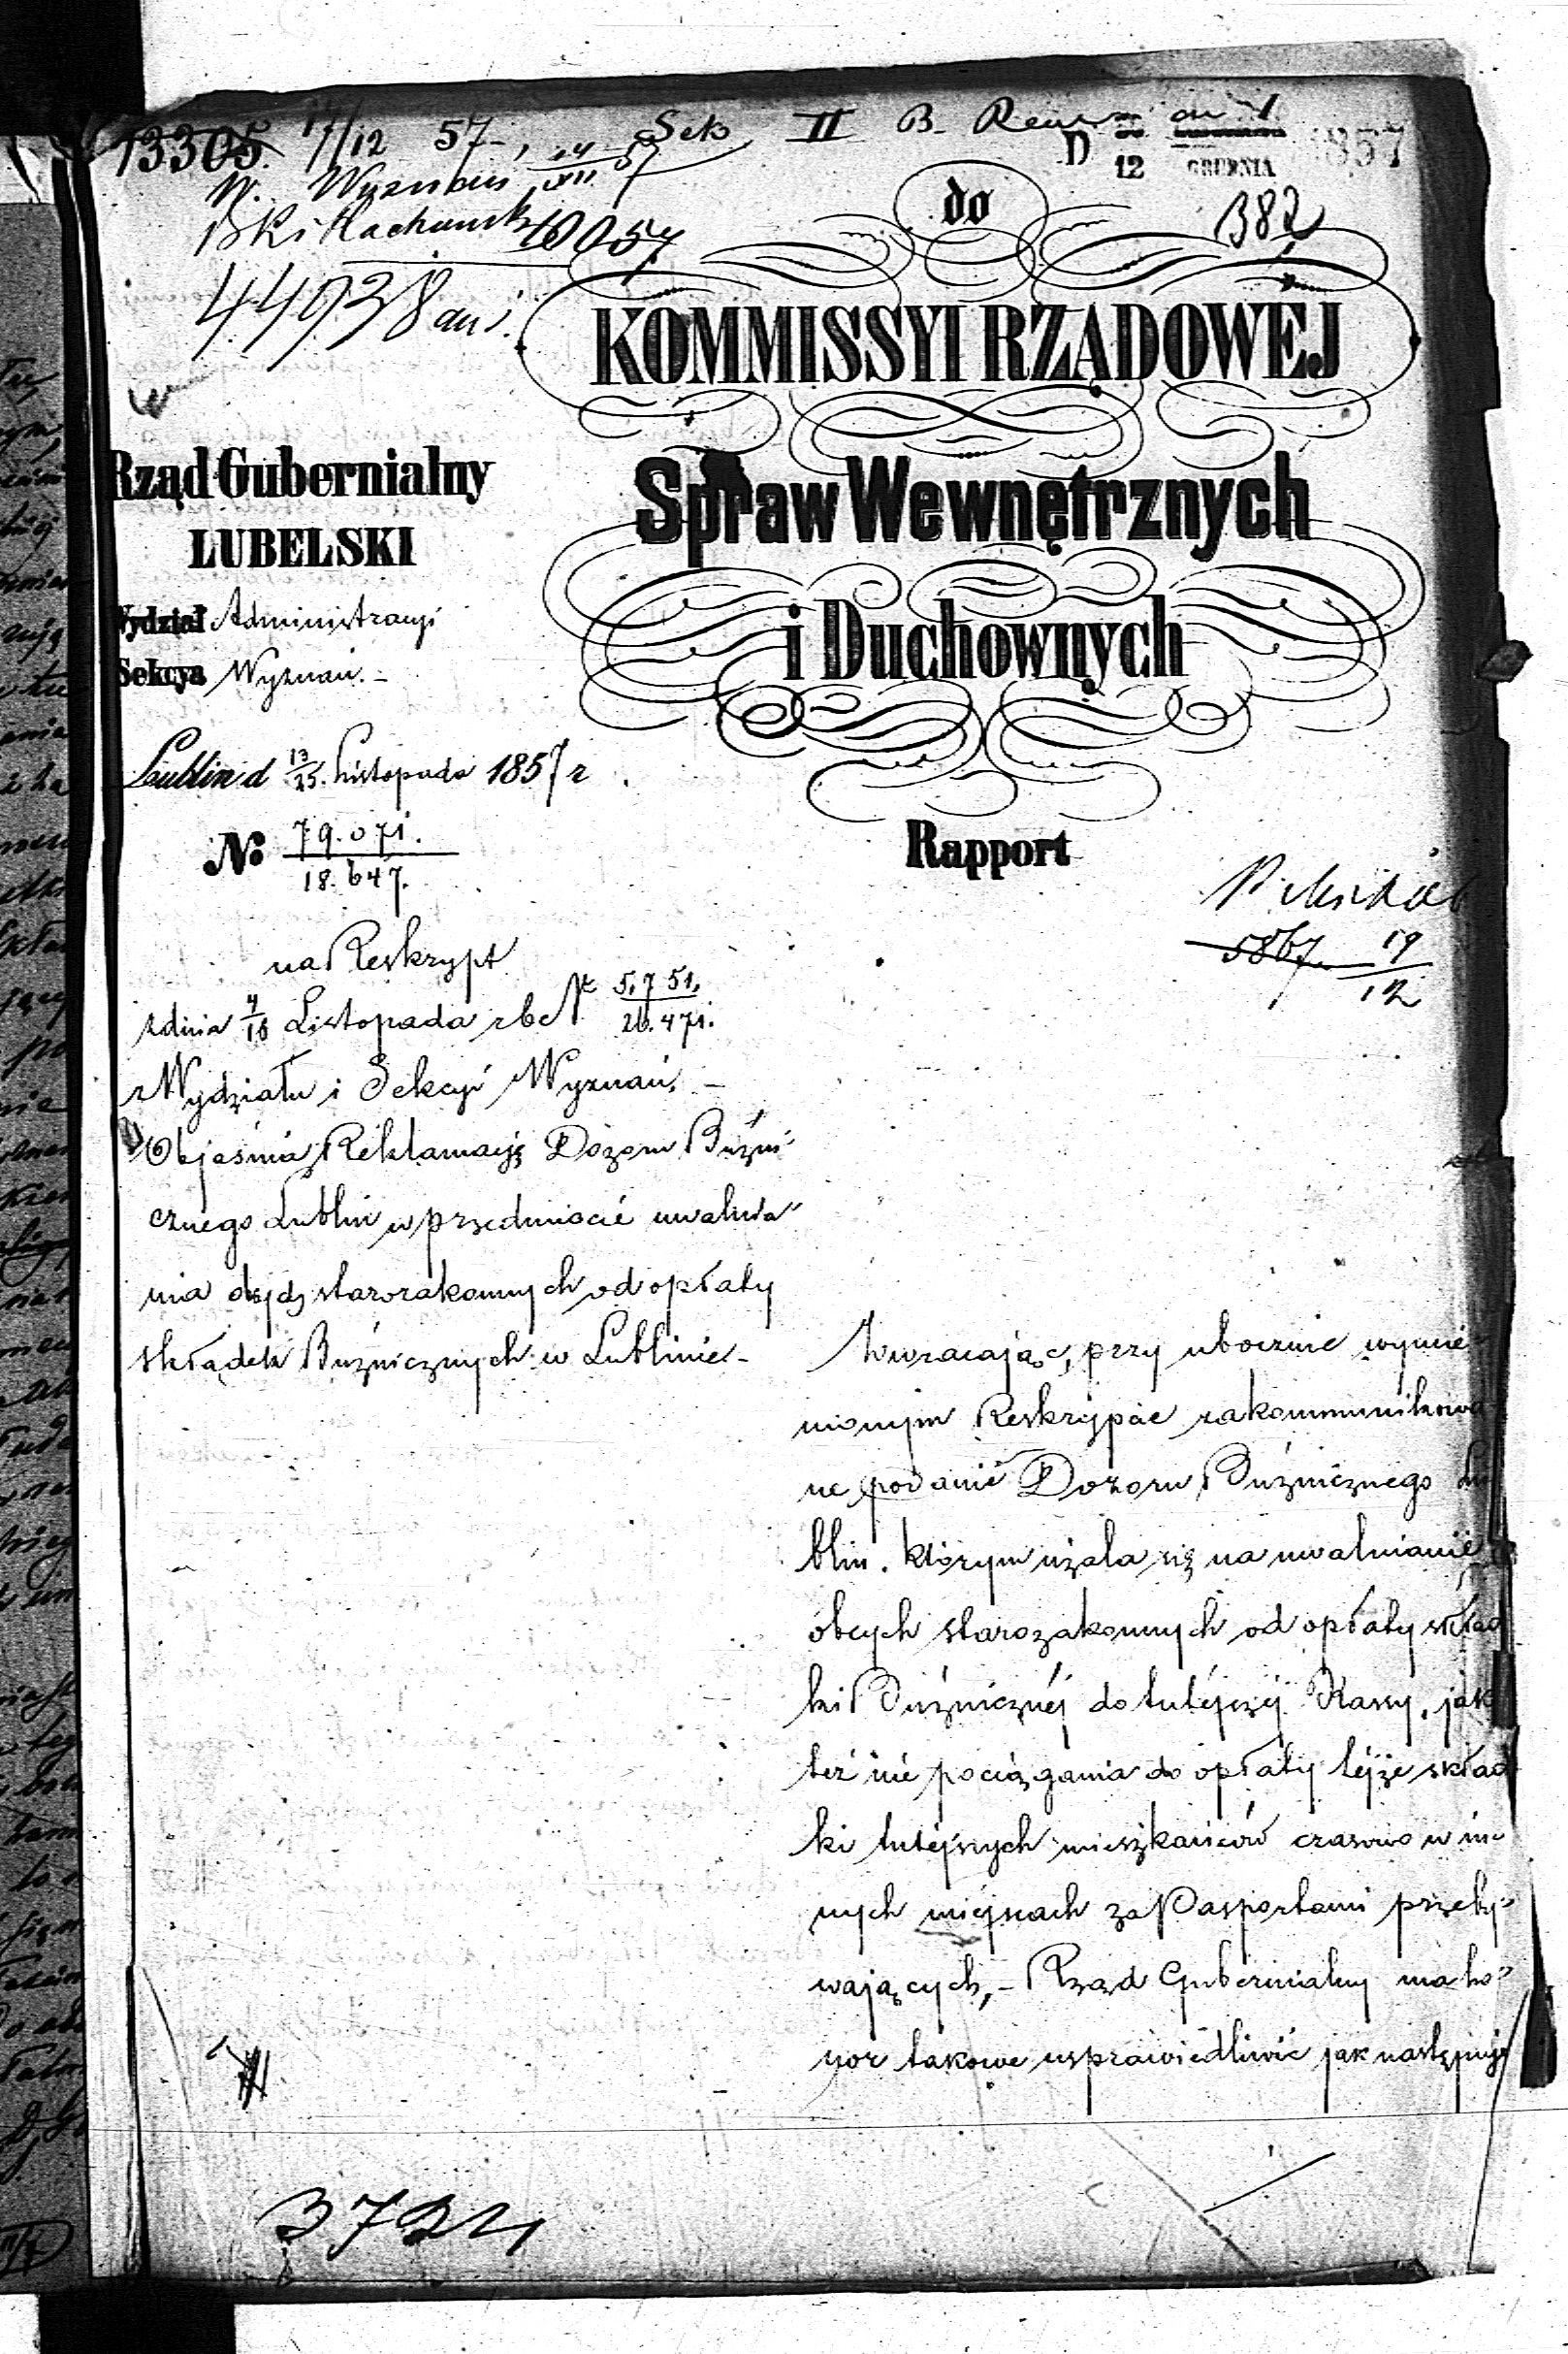 13305. 17/12 57
Sek II B.
D 12 GRUDNIA 1857
W. Wyznań
10057
382
44938
do
KOMMISSYI RZĄDOWEJ
Spraw Wewnętrznych
i Duchownych
Rapport
Rząd Gubernialny
LUBELSKI
Wydział Administracyi
Sekcya Wyznań. -
Lublin d 13/25. Listopada 1857 r.
№ 79.071. / 18.647.
na Reskrypt
z dnia 4/16 Listopada r b № 5,751, / 26.471.
z Wydziału i Sekcyi Wyznań. -
Objaśnia Reklamacyę Dozoru Bużni-
cznego Lublin w przedmiocie uwalnia-
nia obcych starozakonnych od opłaty
składek Bużnicznych w Lublinie -
5867 19/12
Zwracając, przy ubocznie wymie-
nionym Reskrypcie zakommunikowa-
ne podanie Dozoru Bużnicznego Lu
blin. którym użala się na uwalnianie
obcych starozakonnych od opłaty skład
ki Bużnicznéj do tutéjszéj Kassy, jak
też nie pociągania do opłaty téjże skład
ki tutéjszych mieszkańców czasowo w in-
nych miejscach za Pasportami przeby-
wających, - Rząd Gubernialny ma ho-
nor takowe usprawiedliwić jak następuje
3724